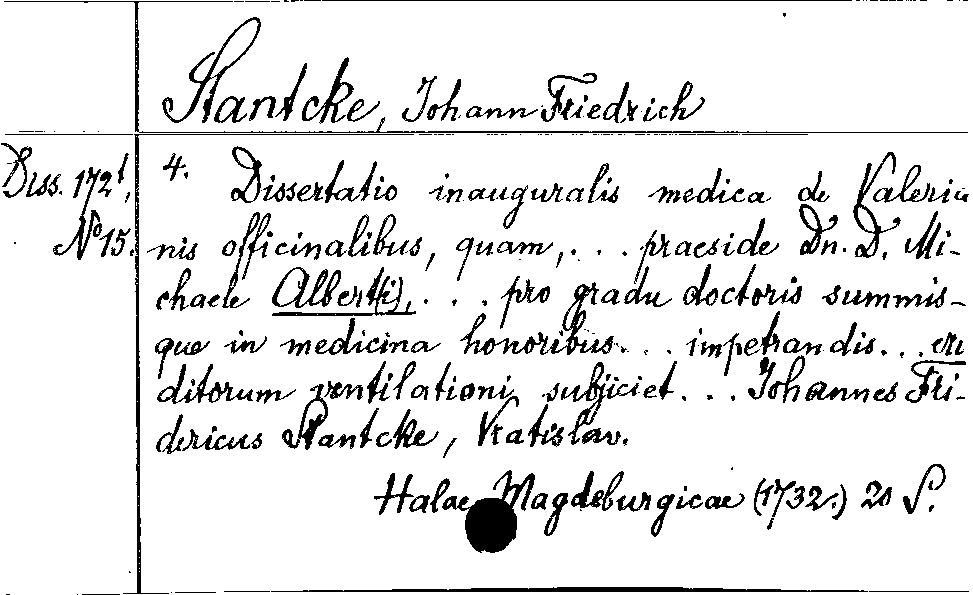 Stantcke, Johann Friedrich
Diss. 1721,
No 15.
4. Dissertatio inauguralis medica de Valeria
nis officinalibus, quam, . . . praeside Dn. D. Mi-
chaele Albert(i), . . . pro gradu doctoris summis-
que in medicina honoribus . . . impetrandis . . . eru
ditorum ventilationi subjiciet . . . Johannes Fri-
dericus Stantcke, Vratislav.
Halae Magdeburgicae (1732.) 20 S.